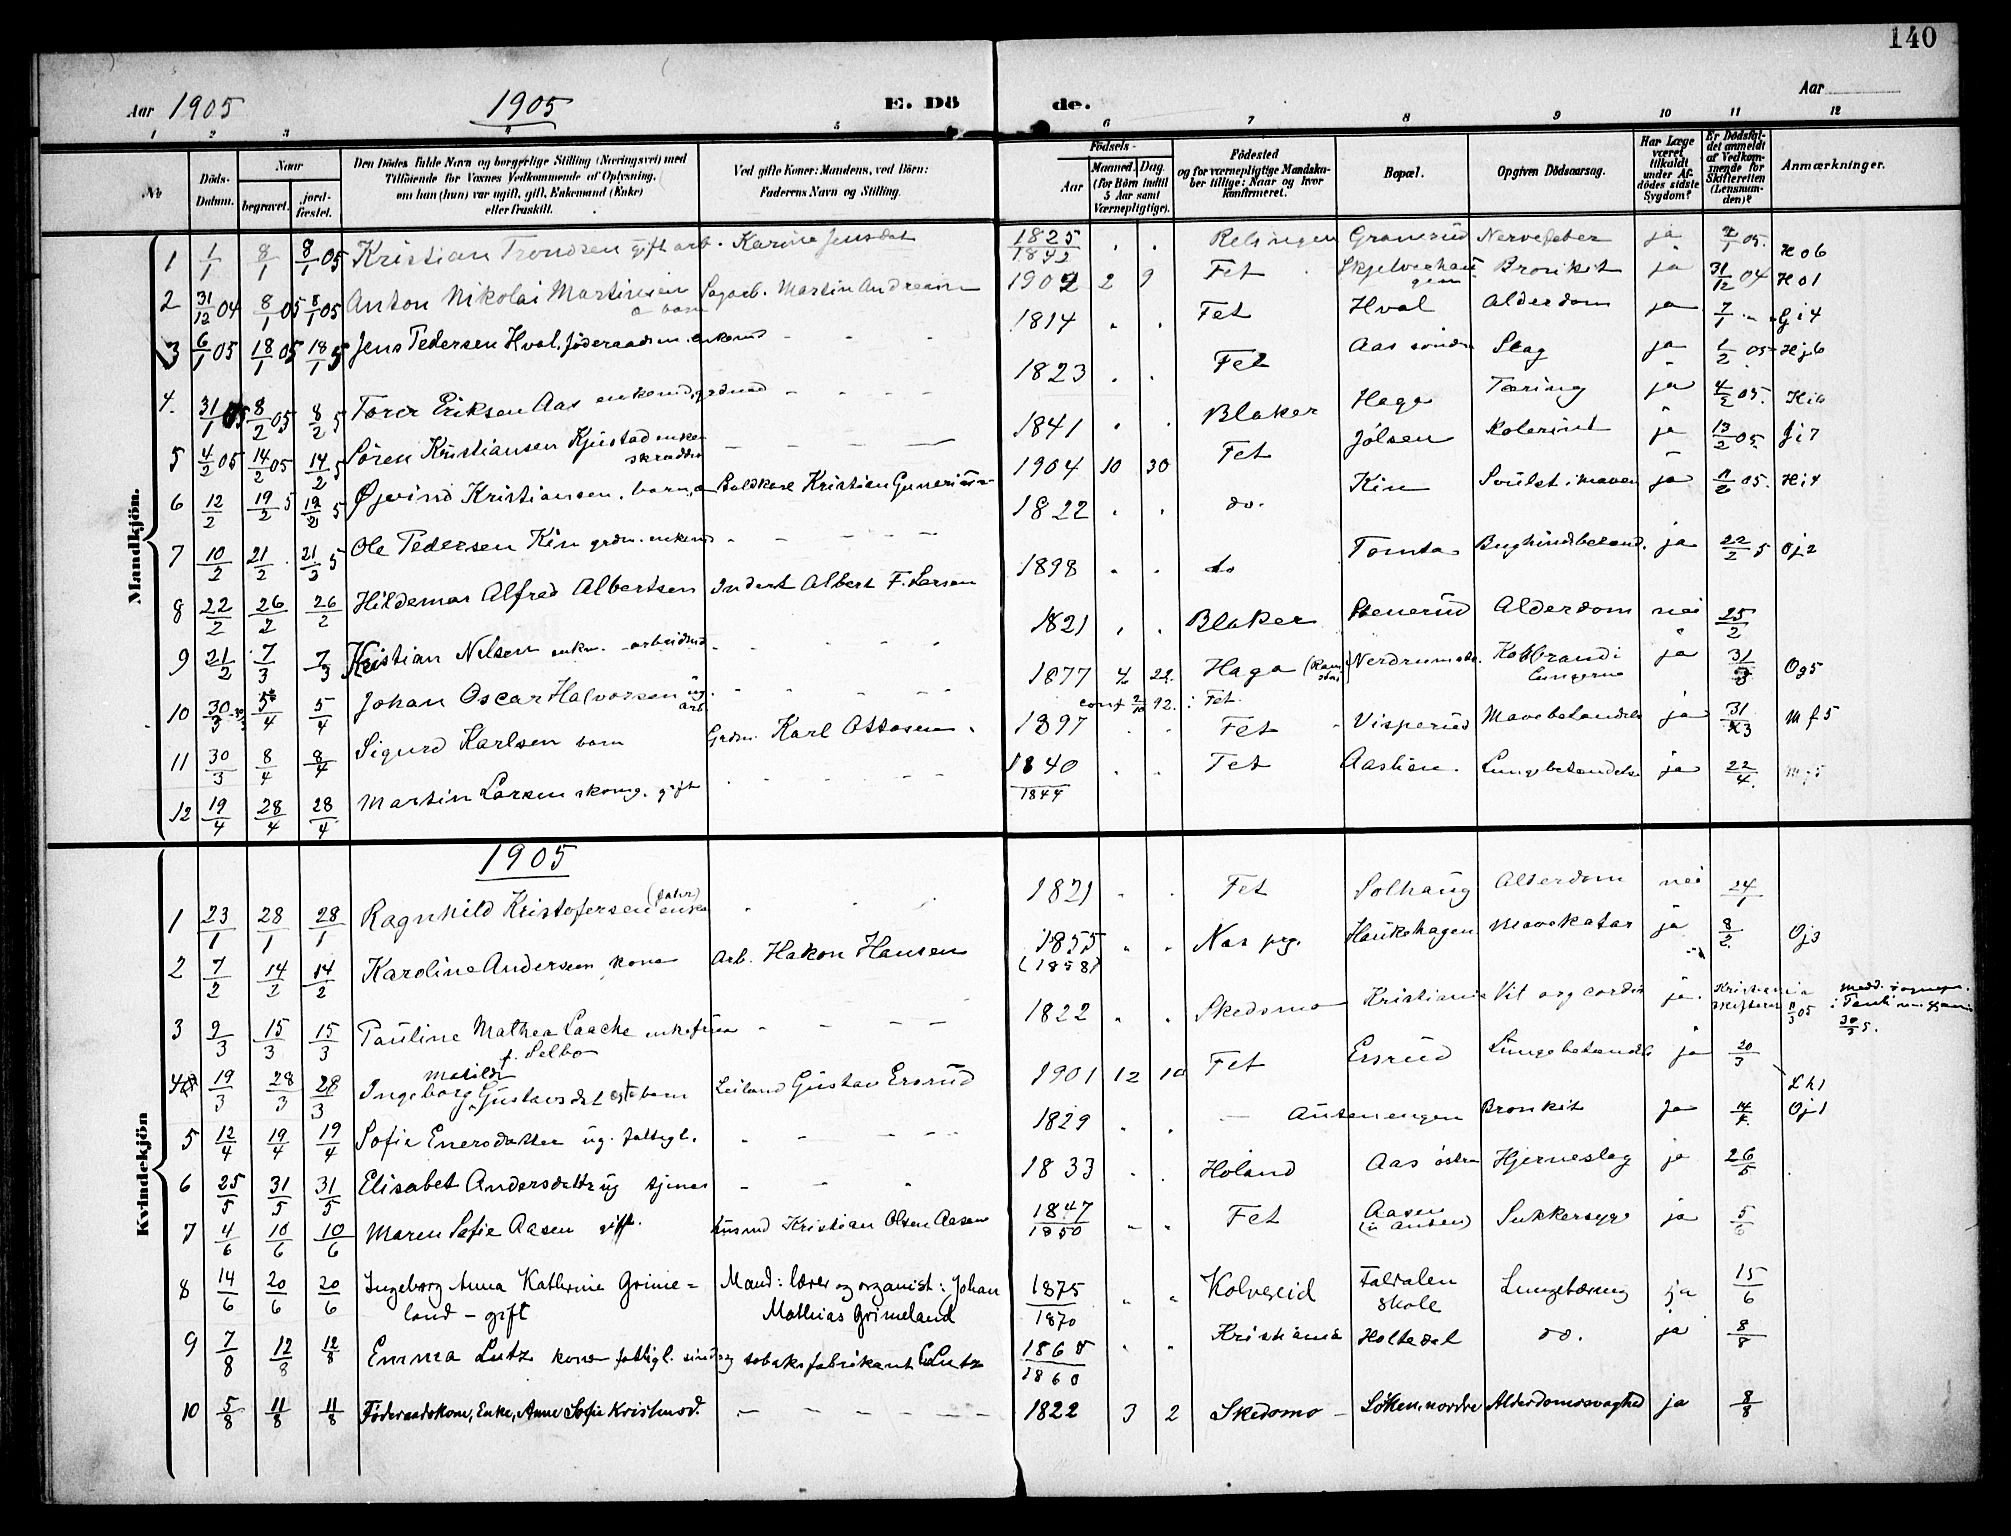 140
Aar 1905 1905 E. Dö de. Aar
1 2 3 4 5 6 7 8 9 10 11 12
No Döds-Datum. Naar begravet. jord-fæstet. Den Dödes fulde Navn og borgerlige Stilling (Næringsvei) med Tilföiende for Voxnes Vedkommende af Oplysning, om han (hun) var ugift, gift, Enkemand (Enke) eller fraskilt. Ved gifte Koner: Mandens, ved Börn: Faderens Navn og Stilling. Födsels- Aar Maaned. Dag. (for Börn indtil 5 Aar samt Værnepligtige). Födested og for værnepligtige Mandskaber tillige: Naar og hvor konfirmeret. Bopæl. Opgiven Dödsaarsag. Har Læge været tilkaldt under Afdödes sidste Sygdom? Er Dödsfaldet anmeldt af Vedkommende for Skifteretten (Lensmanden)? Anmærkninger.
Mandkjön.
1 1/1 8/1 8/1 05 Kristian Trondsen gift arb. Karine Jensdat 1825 1842 Relingen Granerud Nervefeber ja 2/1 05. H 06
2 31/12 04 8/1 05 8/1 05 Anton Nikolai Martinsen barn Sagarb. Martin Andreasen 1902 2 9 Fet Bronkit ja 31/12 04 H 01
3 6/1 05 18/1 05 18/1 5 Jens Pedersen Hval, föderaadsm. enkemd 1814 Fet Hval Alderdom ja 7/1 G i 4
4. 31/1 05 8/2 05 8/2 5 Torer Eriksen Aas enkemd, grdmd 1823 Fet Aas söndre Slag ja 1/2 05 H j 6
5 4/2 05 14/2 05 14/2 5 Sören Kristiansen Kjustad enkem skrædder 1841 Blaker Haga Tæring ja 4/2 05. H i 6
6 12/2 19/2 5 19/2 5 Öivind Kristiansen, barn Baldkarl Kristian Gunerius 1904 10 30 Fet Jölsen Kolerint ja 13/2 05. J i 7
7 10/2 21/2 21/2 5 Ole Pedersen Kin grdm. enkemd 1822 do. Kin Svulst i maven ja 05. H i 4
8 22/2 26/2 26/2 Hildemar Alfred Albertsen Inderst Albert F. Larsen 1898 do Tomta Bughindebetænd. ja 22/2 5 O j 2
9 21/2 7/3 7/3 Kristian Nilsen enkm. arbeidsmd 1821 Blaker Stenerud Alderdom nei 25/2
10 30/3 5/4 5/4 Johan Oscar Halvorsen ug. arb 1877 4 22. Haga Nerdrum Koldbrand i lungerne ja 31/3 O g 5
conf 92. Fet.
11 30/3 8/4 8/4 Sigurd Karlsen barn Grdm. Karl Ottosen 1897 Fet Visperud Mavebetændels ja 31/3 M f 5
12 19/4 28/4 28/4 Martin Larsen skomg. gift 1840 1844 Fet Aaslien. Lungebetændelse ja 22/4.
1905
Kvindekjön
1 23/1 28/1 28/1 Ragnhild Kristofersen enke 1821 Fet Solhaug Alderdom nei 24/1
2 7/2 14/2 14/2 Karoline Andersen kone Arb. Hakon Hansen 1855 (1858) Nas prg. Haukshagen Mavekatar ja 8/2. O j 3
3 9/3 15/3 15/3 Pauline Mathea Laache enkefrue f. Selbo 1822 Skedsmo Kristiania Vit. org cordis ja. Kristiania skifteret 05 30/3 5.
4 19/3 28/3 28/3 Ingeborg Matilde Gustavsdat barn Leiland Gustav Ersrud 1901 12 10 Fet Ersrud Lungebetændels ja 20/3 L h 1
5 12/4 19/4 19/4 Sofie Enersdatter ug. fattigl. 1829 Autenengen Bronkit ja 14/4. O j 1
6 25/5 31/5 31/5 Elisabet Andersdatter ug tjener 1833 Höland Aas östre Hjerneslag ja 26/5
7 4/6 10/6 10/6 Maren Sofie Aasen gift. Husmd Kristian Olsen Aasen 1847 1850 Fet Aasen Sukkersyge ja 5/6
8 14/6 20/6 20/6 Ingeborg Anna Kathrine Grime= land - gift Mand: lærer og organist: Johan Mathias Grimeland 1875 1870 Kolvereid Faldalen skole Lungetæring ja 15/6
9 7/8 12/8 12/8 Emma Lutz kone fattigl. sindssyg tobaksfabrikant Lutz 1868 1860 Kristiania Holtedal do. ja 8/8
10 5/8 11/8 11/8 Föderaadskone, Enke, Anne Sofie Kristensd. 1822 3 2 Skedsmo Löken nordre Alderdomssvaghed ja 8/8